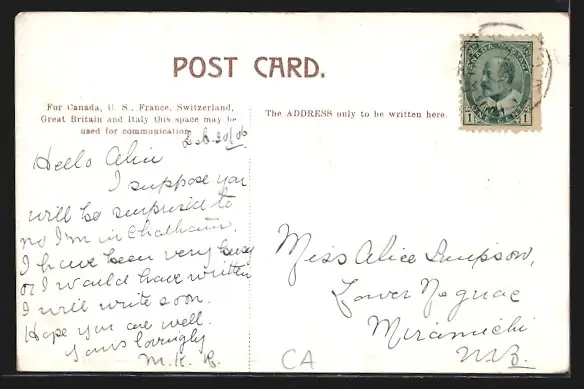 POST CARD.
For Canada, U. S., France, Switzerland,
Great Britain and Italy this space may be
used for communication
The ADDRESS only to be written here.
CANADA POSTAGE
1 1
Hello Alice
I suppose you
will be surprised to
no I'm in Chatham.
I have been very busy
or I would have written
I will write soon.
Hope you are well.
Yours lovingly
M. K. R.
Miss Alice Simpson,
Lower Neguac
Miramichi
N.B.
CA